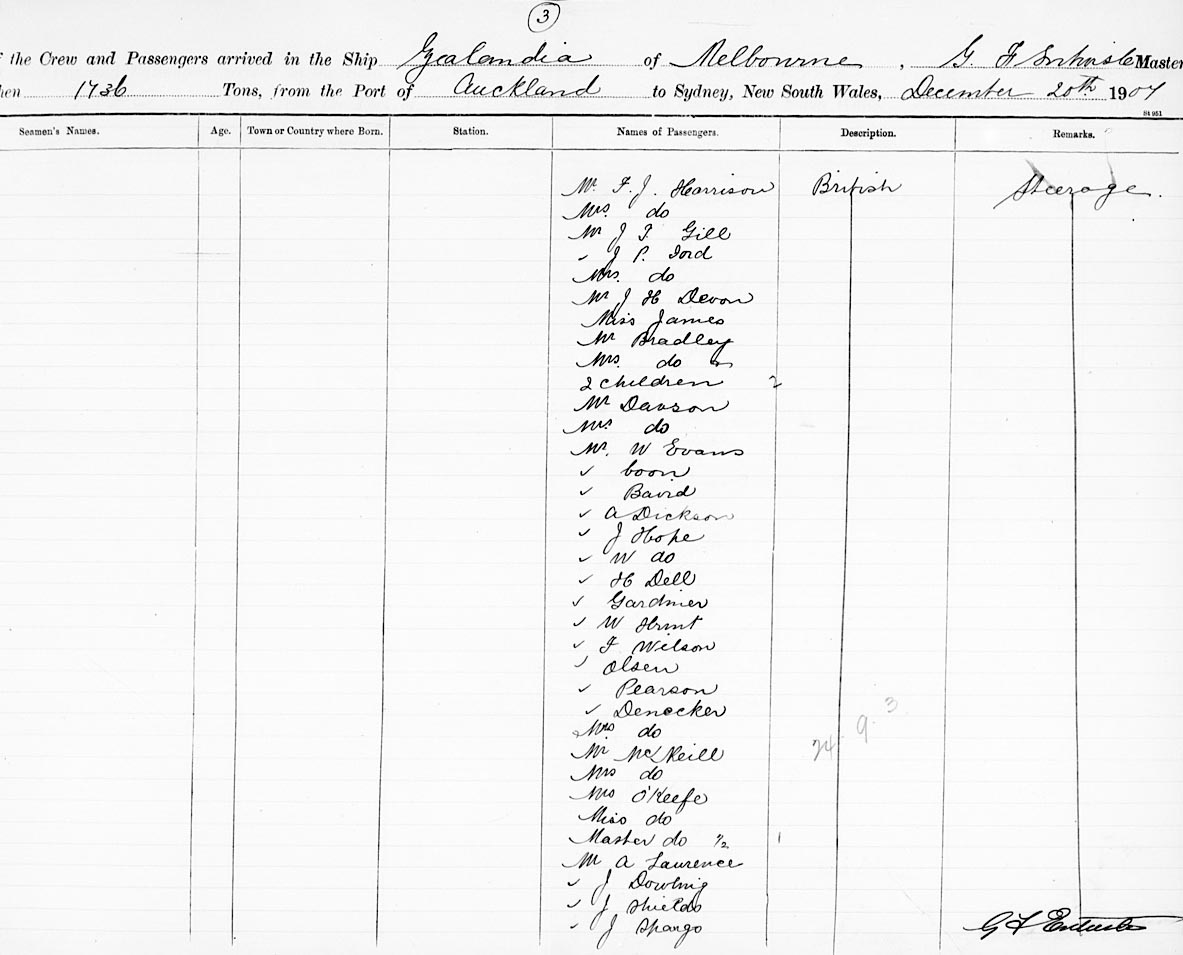 3
f the Crew and Passengers arrived in the Ship Zealandia of Melbourne, G. F. Master
hen 1736 Tons, from the Port of Auckland to Sydney, New South Wales, December 20th 1907
St 951
Seamen's Names. Age. Town or Country where Born. Station. Names of Passengers. Description. Remarks.
Mr F. J. Harrison British Steerage.
Mrs. do
Mr J T. Gill
✓ J P. Ford
Mrs. do
Mr J H Devon
Miss James
Mr Bradley
Mrs. do
2 children 2
Mr Dawson
Mrs do
Mr. W Evans
✓ Coon
✓ Baird
✓ A Dickson
✓ J Hope
✓ W do
✓ H Dell
✓ Gardiner
✓ W Hunt
✓ F Wilson
✓ Olsen
✓ Pearson
✓ Denecker
Mrs do
24 9. 3
Mr McNeill
Mrs do
Mrs O'Keefe
Miss do
Master do ½ 1
Mr A Laurence
✓ J Dowling
✓ J Shields
✓ J Spargo
G F